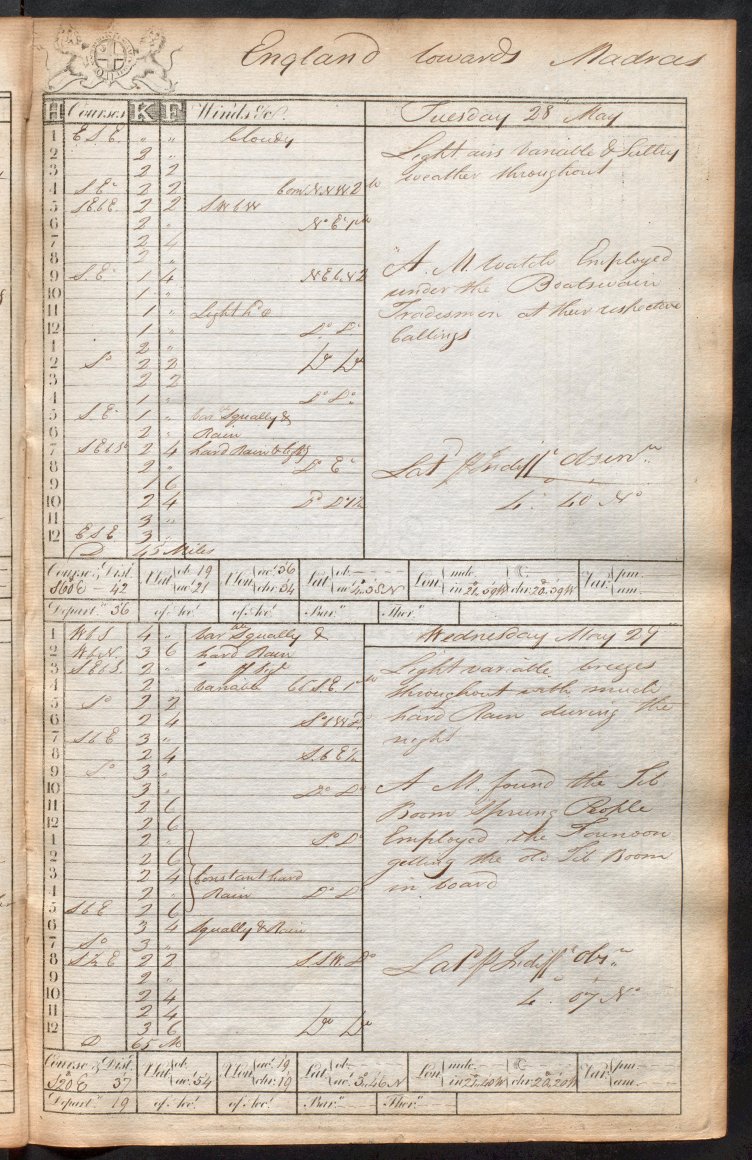 England towards Madras
H Courses K F Winds &c. Tuesday 28 May
1 E S E " " Cloudy
Light airs Variable & Sultry
2 2 "
weather throughout
3 2 2
4 S Et 2 2 Com. N.N.W. 2
5 SEbE 2 2 S W b W
6 2 " No Et
7 2 4
8 2 "
A. M. Watch Employed
9 S. Et 1 4 N E b. N 2
under the Boatswain
10 1 "
Tradesmen at their respective
11 1 " Light
12 1 " Do Do
Callings
1 2 "
2 So 2 2 Do Do
3 2 2
4 1 " Do Do
5 S. Et 1 " Var Squally &
6 2 " Rain
7 S E b S 2 4 hard Rain &
8 2 " Do Et
Latd p Indifft Observn
9 1 6
10 2 4 Do
4° 40 No
11 3 "
12 E S E 3 "
D 45 Miles
Course & Dist. S 60 E - 42 D Lat ob. 19 acct. 21 D Lon acct. 36 chr. 34 Lat ob — acct. 4.38 N Lon made — in 21.59 W C. — chr. 20.39 W Var. pm. — am. —
Depart. 36 of Acct. of Acct. Barr. Ther.
1 W b S 4 " Var Squally &
Wednesday May 29
2 W b N. 3 6 hard Rain
3 2 "
Light variable breezes
4 2 " Variable S. E 1
throughout with much
5 So 2 2
hard Rain during the
6 2 4
night
7 S b E 3 "
8 2 4 S. b E
9 So 3 "
A M. found the Jib
10 3 " Do Do
Boom Sprung People
11 2 6
12 2 6
Employed the Forenoon
1 2 " So Do
getting the old Jib Boom
2 2 6
in board
3 2 4 Constant hard
4 2 " Rain Do Do
5 S b E 2 6
6 3 4 Squally & Rain
7 So 3 "
8 2 2 S S W. Do
Latd p Indifft obsn
9 2 "
4° 07 No
10 2 4
11 2 4
12 3 6 Do Do
D 65 M
Course & Dist. S 20 E 37 D Lat ob. acct. 34 D Lon acct. 19 chr. 19 Lat ob — acct. 3.46 N Lon made — in 21.40 W C. — chr. 20.20 W Var. pm. — am. —
Depart. 19 of Acct. of Acct. Barr. Ther.